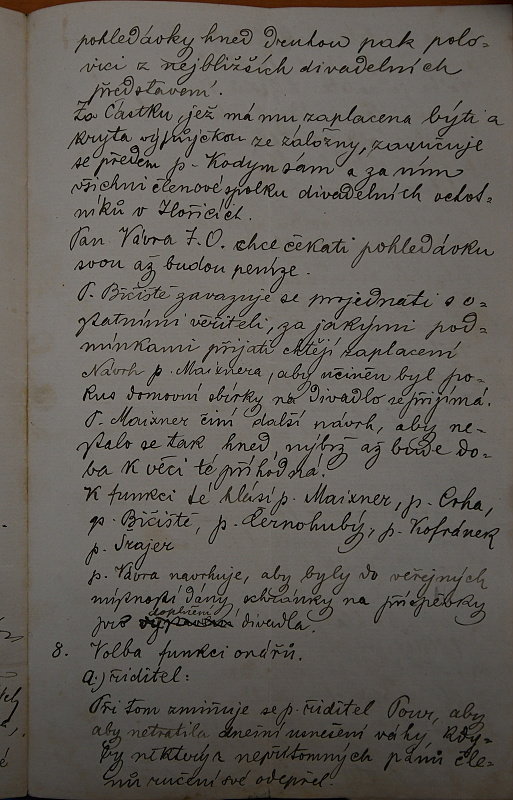 pohledávky hned druhou pak polo-
vici z nejbližších divadelních
představení.
Za částku, jež má mu zaplacena býti a
kryta výpůjčkou ze záložny, zaručuje
se předem p. Kodym sám a za ním
všichni členové spolku divadelních ochot-
níků v Hořicích.
Pan Vávra F. O. chce čekati pohledávku
svou až budou peníze.
P. Bičiště zavazuje se projednati s o-
statními věřiteli, za jakými pod-
mínkami přijati chtějí zaplacení
Návrh p. Maixnera, aby učiněn byl po-
kus domovní sbírky na divadlo se přijímá.
P. Maixner činí další návrh, aby ne-
stalo se tak hned, nýbrž až bude do-
ba k věci té příhodna.
K funkci té hlásí p. Maixner, p. Crha,
p. Bičiště, p. Černohubý, p. Kofránek
p. Šrajer
p. Vávra navrhuje, aby byly do veřejných
místností dány schránky na příspěvky
pro doplnění divadla.
8. Volba funkcionářů.
a.) řiditel:
Při tom zmiňuje se p. řiditel Pour, aby
aby netratila dnešní usnesení váhy kdy-
by některý z nepřítomných pánů čle-
nů ručení své odepřel.